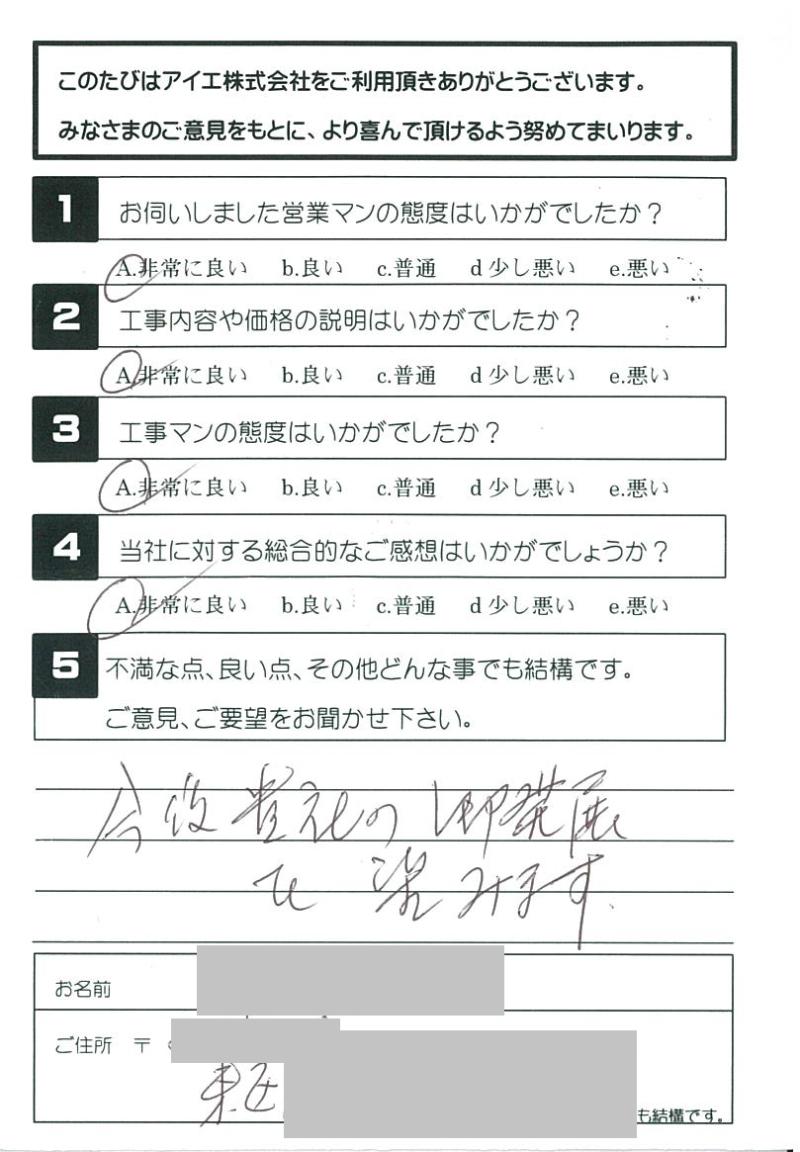 このたびはアイエ株式会社をご利用頂きありがとうございます。
みなさまのご意見をもとに、より喜んで頂けるよう努めてまいります。
1 お伺いしました営業マンの態度はいかがでしたか？
A.非常に良い b.良い c.普通 d 少し悪い e.悪い
2 工事内容や価格の説明はいかがでしたか？
A.非常に良い b.良い c.普通 d 少し悪い e.悪い
3 工事マンの態度はいかがでしたか？
A.非常に良い b.良い c.普通 d 少し悪い e.悪い
4 当社に対する総合的なご感想はいかがでしょうか？
A.非常に良い b.良い c.普通 d 少し悪い e.悪い
5 不満な点、良い点、その他どんな事でも結構です。
ご意見、ご要望をお聞かせ下さい。
今後貴社の御発展
を望みます
お名前
ご住所 〒
東区
も結構です。